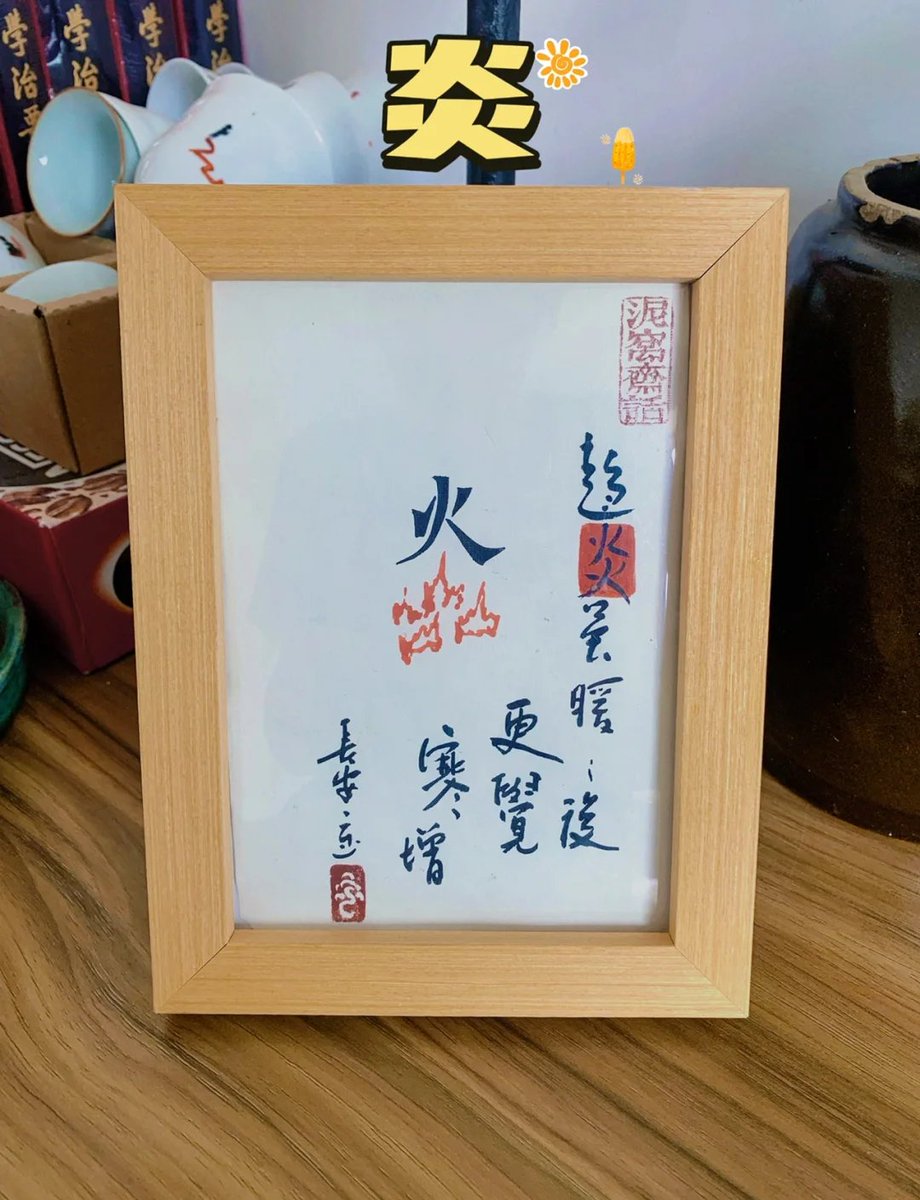 炎
學治
學治
學治
學治要
泥窩齋話
趨炎虽暖、後
更覺
寒、增
火
長安